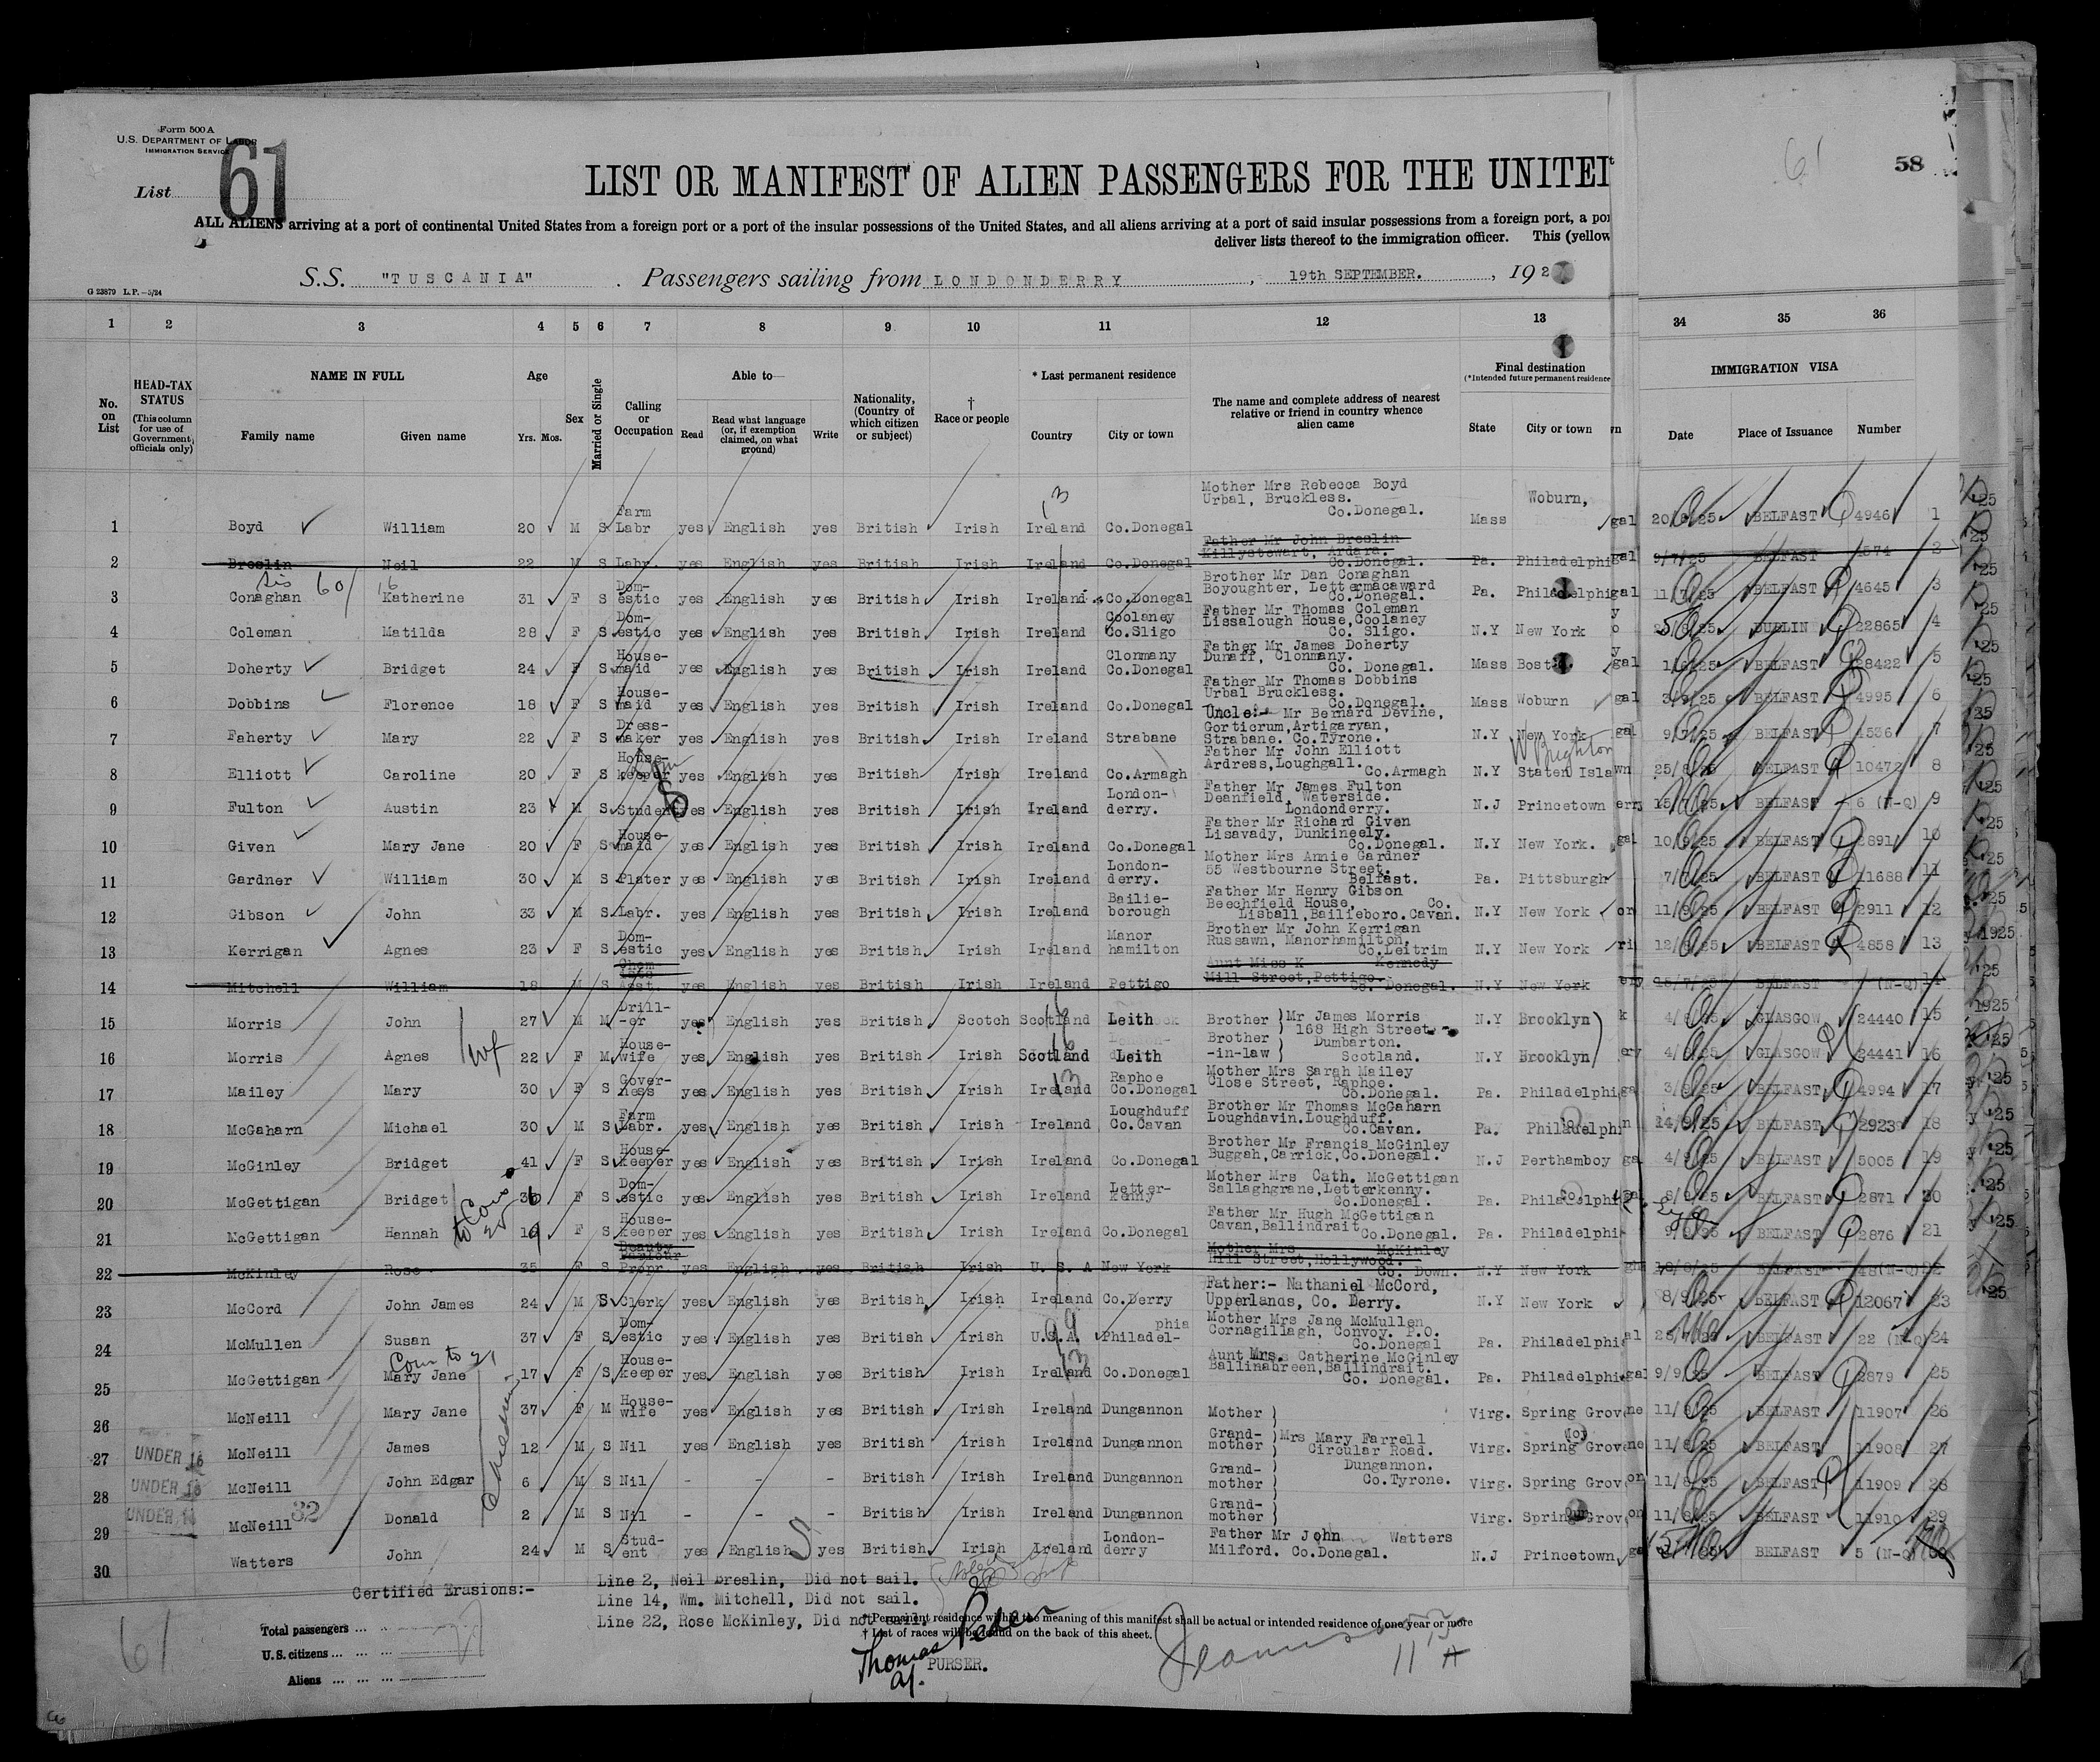 Form 500 A
U.S. DEPARTMENT OF LABOR
IMMIGRATION SERVICE
List 61
61 58
LIST OR MANIFEST OF ALIEN PASSENGERS FOR THE UNITE
ALL ALIENS arriving at a port of continental United States from a foreign port or a port of the insular possessions of the United States, and all aliens arriving at a port of said insular possessions from a foreign port, a por
deliver lists thereof to the immigration officer. This (yellow
S.S. "TUSCANIA". Passengers sailing from LONDONDERRY, 19th SEPTEMBER., 192
G 23879 L.P.-5/24
1 2 3 4 5 6 7 8 9 10 11 12 13 34 35 36
No. on List
HEAD-TAX STATUS (This column for use of Government officials only)
NAME IN FULL Family name Given name
Age Yrs. Mos.
Sex
Married or Single
Calling or Occupation
Able to Read Read what language (or, if exemption claimed, on what ground) Write
Nationality, (Country of which citizen or subject)
† Race or people
* Last permanent residence Country City or town
The name and complete address of nearest relative or friend in country whence alien came
Final destination (*Intended future permanent residence State City or town
IMMIGRATION VISA Date Place of Issuance Number
1 Boyd William 20 M S Farm Labr yes English yes British Irish Ireland Co.Donegal Mother Mrs Rebecca Boyd Urbal, Bruckless. Co.Donegal. Mass Woburn, gal BELFAST 4946 1
2 Breslin Neil 22 M S Labr. yes English yes British Irish Ireland Co.Donegal Father Mr John Breslin Killystewart, Ardara. Co.Donegal. Pa. Philadelphi gal 9/7/25 BELFAST 1574 2
sis 60/16
3 Conaghan Katherine 31 F S Dom-estic yes English yes British Irish Ireland Co.Donegal Brother Mr Dan Conaghan Boyoughter, Lettermacaward Co.Donegal. Pa. Philadelphi gal BELFAST 4645 3
4 Coleman Matilda 28 F S Dom-estic yes English yes British Irish Ireland Coolaney Co.Sligo Father Mr Thomas Coleman Lissalough House, Coolaney Co. Sligo. N.Y New York o DUBLIN 22865 4
5 Doherty Bridget 24 F S House-maid yes English yes British Irish Ireland Clonmany Co.Donegal Father Mr James Doherty Dunaff, Clonmany. Co. Donegal. Mass Bost gal BELFAST 28422 5
6 Dobbins Florence 18 F S House-maid yes English yes British Irish Ireland Co.Donegal Father Mr Thomas Dobbins Urbal Bruckless. Co.Donegal. Mass Woburn gal BELFAST 4995 6
7 Faherty Mary 22 F S Dress-maker yes English yes British Irish Ireland Strabane Uncle:- Mr Bernard Devine, Gorticrum, Artigarvan, Strabane. Co.Tyrone. N.Y New York gal BELFAST 1536 7
8 Elliott Caroline 20 F S House-keeper yes English yes British Irish Ireland Co.Armagh Father Mr John Elliott Ardress, Loughgall. Co.Armagh N.Y W Brighton Staten Isla wn BELFAST 10472 8
9 Fulton Austin 23 M S Student yes English yes British Irish Ireland London-derry. Father Mr James Fulton Deanfield, Waterside. Londonderry. N.J Princetown erry BELFAST 6 (N-Q) 9
10 Given Mary Jane 20 F S House-maid yes English yes British Irish Ireland Co.Donegal Father Mr Richard Given Lisavady, Dunkineely. Co.Donegal. N.Y New York. gal BELFAST 2891 10
11 Gardner William 30 M S Plater yes English yes British Irish Ireland London-derry. Mother Mrs Annie Gardner 55 Westbourne Street. Belfast. Pa. Pittsburgh BELFAST 11688 11
12 Gibson John 33 M S Labr. yes English yes British Irish Ireland Bailie-borough Father Mr Henry Gibson Beechfield House, Co. Lisball, Bailieboro. Cavan. N.Y New York BELFAST 2911 12
13 Kerrigan Agnes 23 F S Dom-estic yes English yes British Irish Ireland Manor hamilton Brother Mr John Kerrigan Russawn, Manorhamilton, Co.Leitrim N.Y New York BELFAST 4858 13
14 Mitchell William 18 M S Asst. yes English yes British Irish Ireland Pettigo Aunt Miss K Kennedy Mill Street, Pettigo. Co. Donegal. N.Y New York 15/7/25 BELFAST (N-Q) 14
15 Morris John 27 M M Drill-er yes English yes British Scotch Scotland Leith Brother Mr James Morris 168 High Street N.Y Brooklyn GLASGOW 24440 15
16 Morris Agnes wf 22 F M House-wife yes English yes British Irish Scotland Leith Brother-in-law Dumbarton. Scotland. N.Y Brooklyn GLASGOW 24441 16
17 Mailey Mary 30 F S Gover-ness yes English yes British Irish Ireland Raphoe Co.Donegal Mother Mrs Sarah Mailey Close Street, Raphoe. Co.Donegal. Pa. Philadelphi ga BELFAST 4994 17
18 McGaharn Michael 30 M S Farm Labr. yes English yes British Irish Ireland Loughduff Co.Cavan Brother Mr Thomas McGaharn Loughdavin. Loughduff. Co.Cavan. Pa. Philadelphi BELFAST 2923 18
19 McGinley Bridget 41 F S House-keeper yes English yes British Irish Ireland Co.Donegal Brother Mr Francis McGinley Buggah, Carrick, Co.Donegal. N.J Perthamboy ga BELFAST 5005 19
20 McGettigan Bridget 36 F S Dom-estic yes English yes British Irish Ireland Letter-kenny Mother Mrs Cath. McGettigan Sallaghgrane, Letterkenny. Co.Donegal. Pa. Philadelphi BELFAST 2871 20
21 McGettigan Hannah 19 F S House-keeper yes English yes British Irish Ireland Co.Donegal Father Mr Hugh McGettigan Cavan, Ballindrait Co.Donegal. Pa. Philadelphi BELFAST 2876 21
22 McKinley Rose 35 F S Beauty Parlour Propr. yes English yes British Irish U. S. A New York Mother Mrs McKinley Hill Street, Hollywood. Co. Down. N.Y New York BELFAST 48(N-Q) 22
23 McCord John James 24 M S Clerk yes English yes British Irish Ireland Co.Derry Father:- Nathaniel McCord, Upperlands, Co. Derry. N.Y New York 8/9/25 BELFAST 12067 23
24 McMullen Susan 37 F S Dom-estic yes English yes British Irish U.S.A. Philadel-phia Mother Mrs Jane McMullen Cornagillagh, Convoy. P.O. Co.Donegal Pa. Philadelphi al BELFAST 22 (N-Q) 24
Com to 21
25 McGettigan Mary Jane 17 F S House-keeper yes English yes British Irish Ireland Co.Donegal Aunt Mrs. Catherine McGinley Ballinabreen, Ballindrait. Co. Donegal. Pa. Philadelphi gal 9/9/25 BELFAST 2879 25
26 McNeill Mary Jane 37 F M House-wife yes English yes British Irish Ireland Dungannon Mother Virg. Spring Grove ne BELFAST 11907 26
27 UNDER 16 McNeill James 12 M S Nil yes English yes British Irish Ireland Dungannon Grand-mother Mrs Mary Farrell Circular Road. Virg. Spring Grove ne BELFAST 11908 27
28 UNDER 16 McNeill John Edgar 6 M S Nil - - - British Irish Ireland Dungannon Grand-mother Dungannon. Co.Tyrone. Virg. Spring Grov on BELFAST 11909 28
29 UNDER 16 McNeill 32 Donald 2 M S Nil - - - British Irish Ireland Dungannon Grand-mother Virg. Spring Grov on BELFAST 11910 29
30 Watters John 24 M S Stud-ent yes English yes British Irish Ireland London-derry Father Mr John Watters Milford. Co.Donegal. N.J Princetown ga BELFAST 5 (N-Q) 30
Certified Erasions:- Line 2, Neil Breslin, Did not sail.
Line 14, Wm. Mitchell, Did not sail.
Line 22, Rose McKinley, Did not sail.
* Permanent residence within the meaning of this manifest shall be actual or intended residence of one year or more
† List of races will be found on the back of this sheet.
61
Total passengers
U.S. citizens
Aliens
Thomas
PURSER.